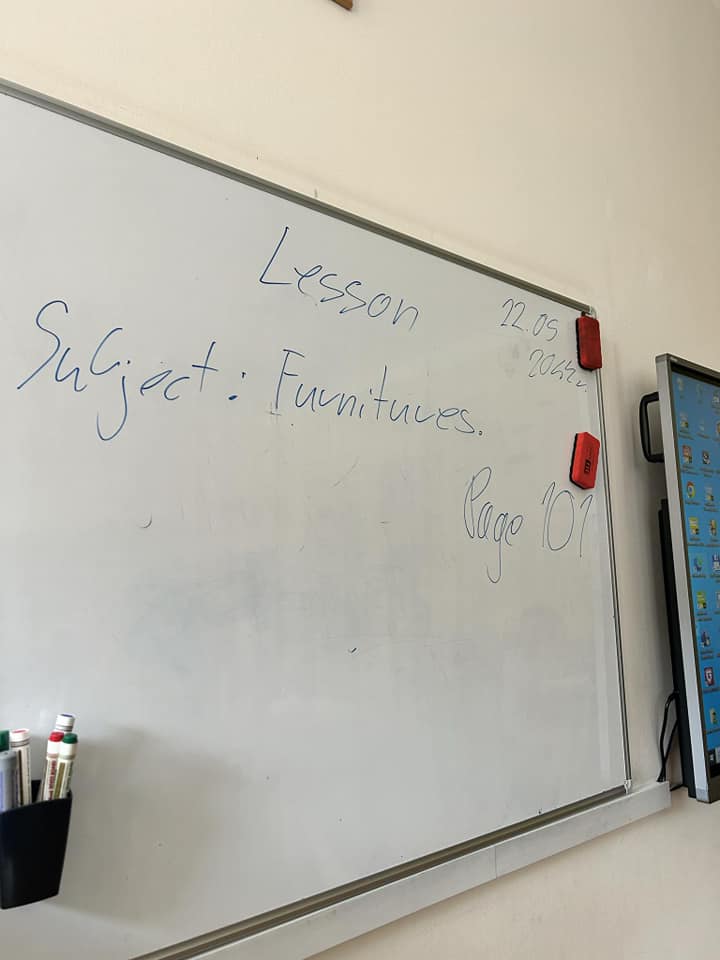 Lesson
22.05
Subject: Furnitures.
Page 101